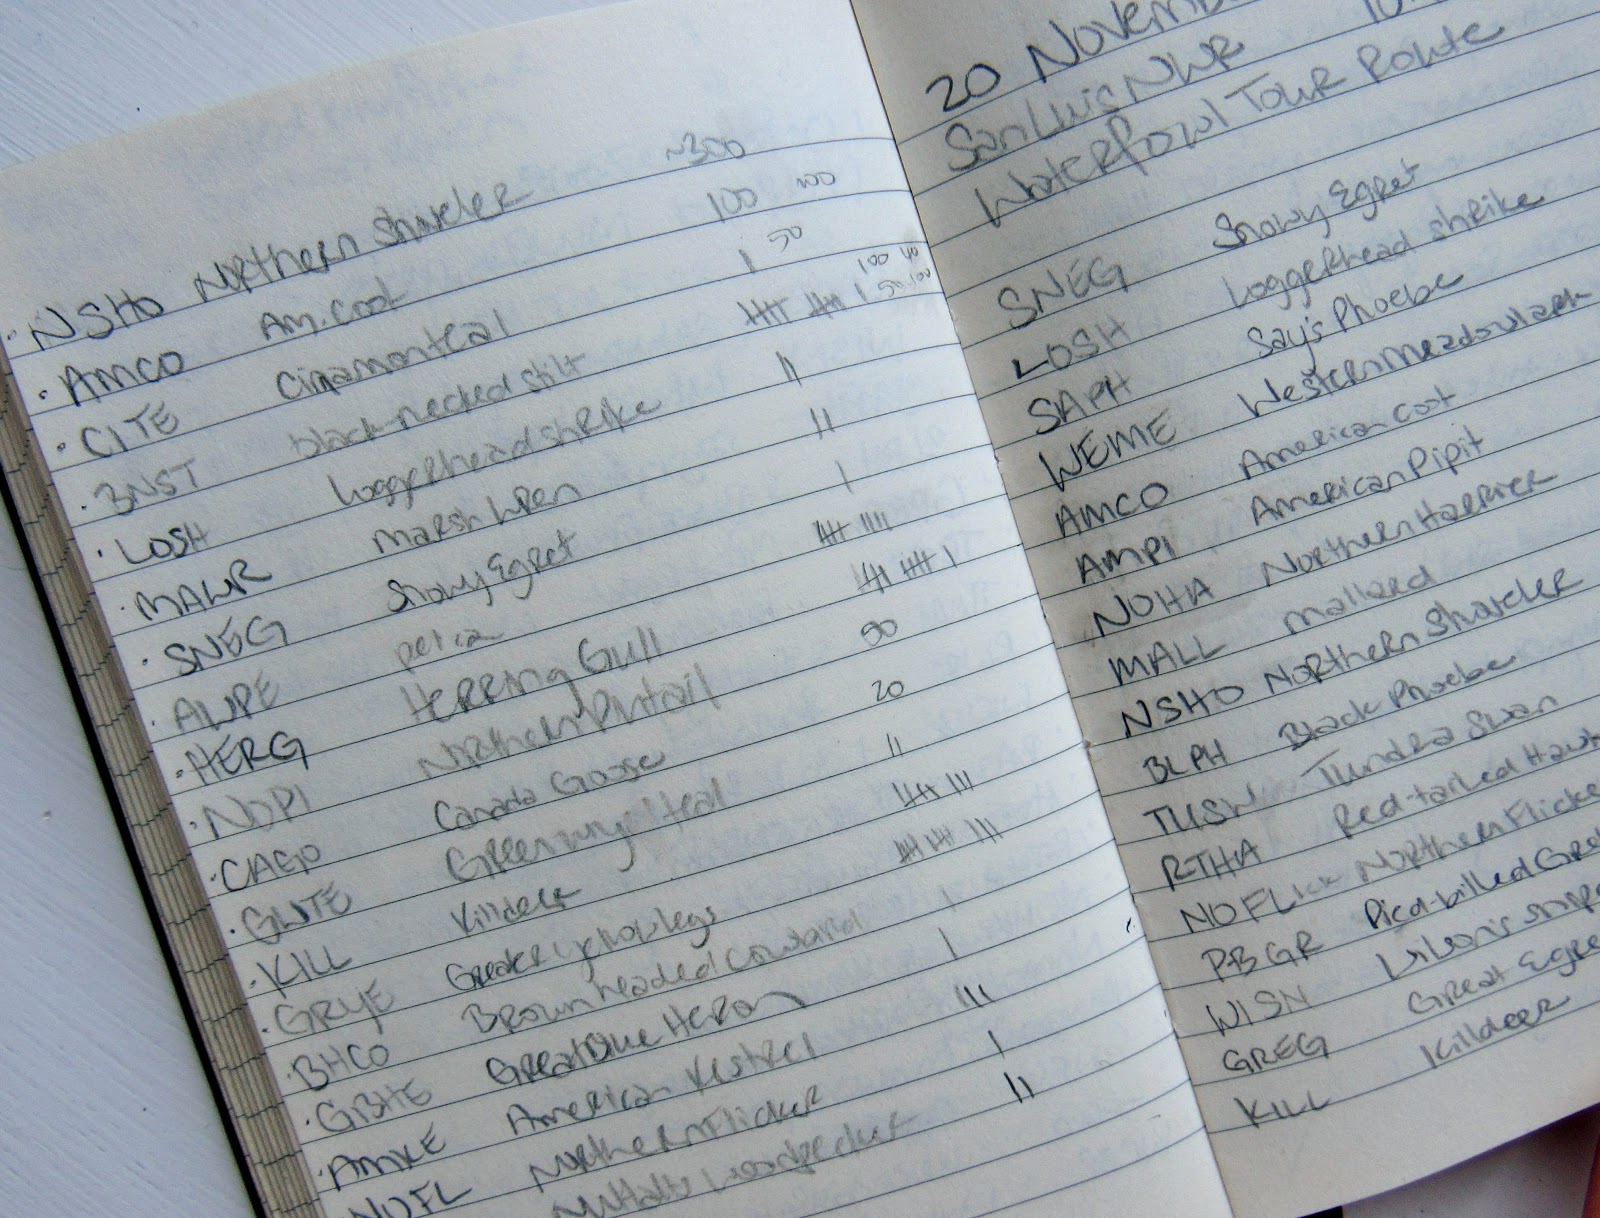 NSHO Northern Shoveler ~300
AMCO Am. Coot 100 100
CITE Cinnamonteal 1 50
BNST black-necked stilt 卌 卌 1 50 100 100 40
LOSH Loggerhead shrike 11
MAWR Marsh Wren 11
SNEG Snowy Egret 1
AWPE pelica 卌 1111
HERG Herring Gull 卌 卌 1
NOPI Northern Pintail 50
CAGO Canada Goose 20
GWTE Greenwingedteal 11
KILL Killdeer 卌 111
GRYE Greater yellowlegs 卌 卌 111
BHCO Brown headed Cowbird 1
GBHE Great Blue Heron 1
AMKE American Kestrel 111
NOFL Northern Flicker 1
Nuttalls woodpecker 11
20 Novembe
San Luis NWR
Waterfowl Tour Route
SNEG Snowy Egret
LOSH Loggerhead shrike
SAPH Say's Phoebe
WEME Western Meadowlark
AMCO American Coot
AMPI American Pipit
NOHA Northern Harrier
MALL mallard
NSHO Northern Shoveler
BLPH Black Phoebe
TUSW Tundra Swan
RTHA Red-tailed Hawk
NOFLick Northern Flicke
PBGR Pied-billed Gre
WISN Wilson's snipe
GREG Great Egre
KILL Killdeer